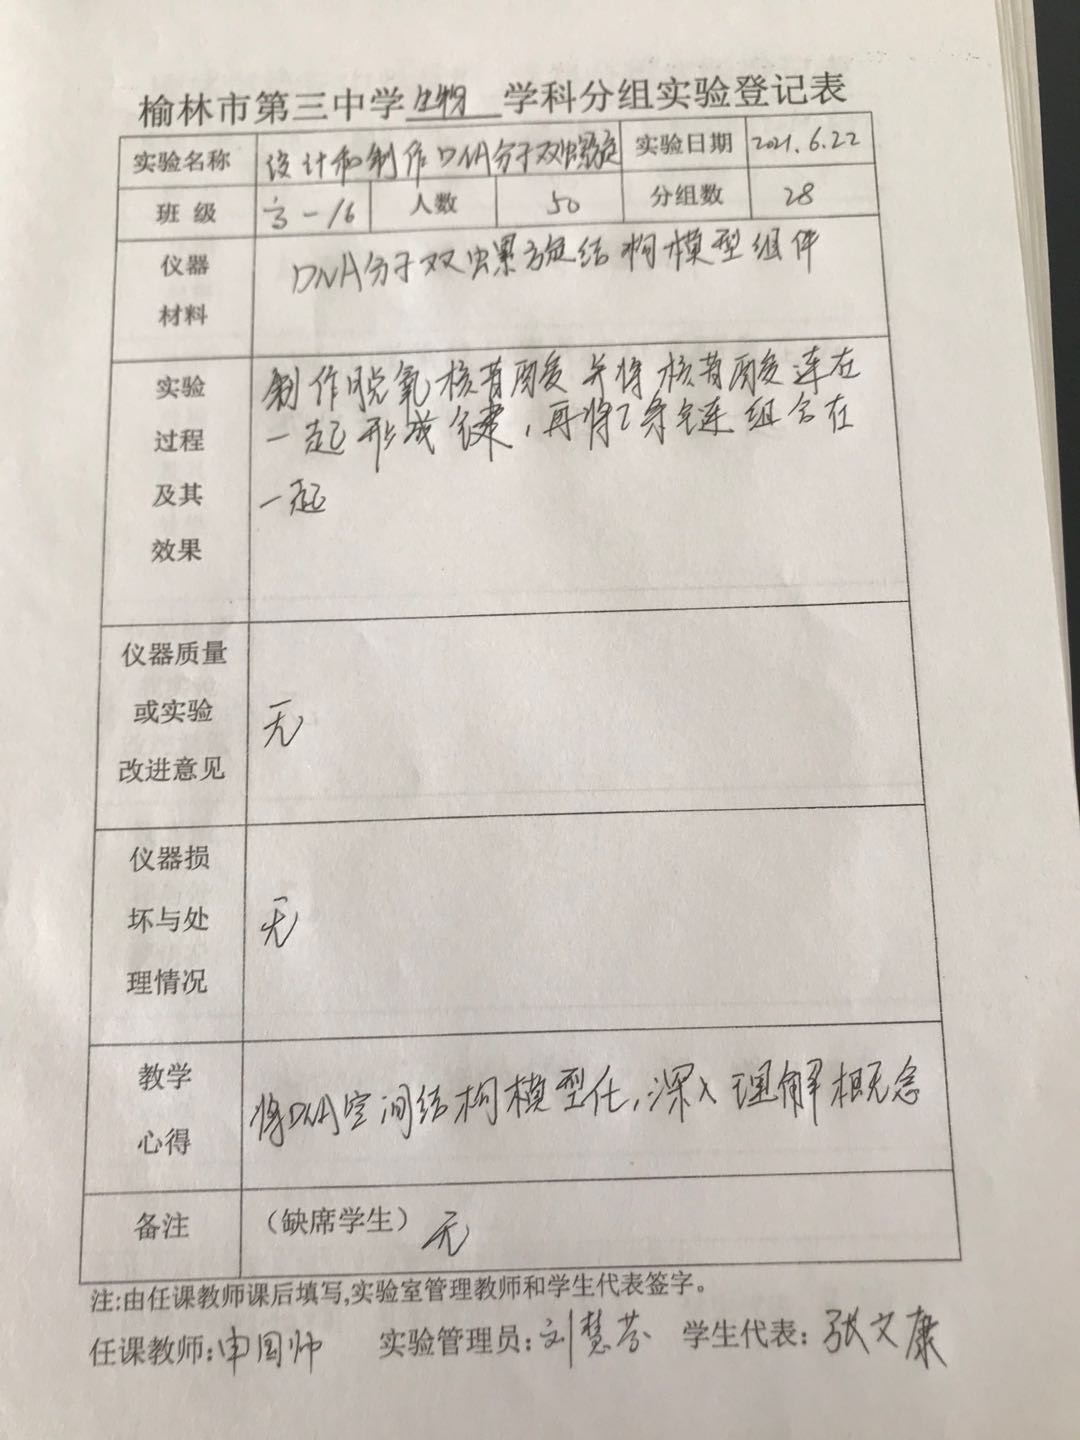 榆林市第三中学生物学科分组实验登记表
实验名称 设计和制作DNA分子双螺旋 实验日期 2021.6.22
班级 高一16 人数 50 分组数 28
仪器 DNA分子双螺旋结构模型组件
材料
实验 制作脱氧核苷酸并将核苷酸连在
过程 一起形成键,再将2条链组合在
及其 一起
效果
仪器质量
或实验 无
改进意见
仪器损
坏与处 无
理情况
教学 将DNA空间结构模型化,深入理解概念
心得
备注 (缺席学生) 无
注:由任课教师课后填写,实验室管理教师和学生代表签字。
任课教师:申国帅 实验管理员:刘慧芬 学生代表:张文康